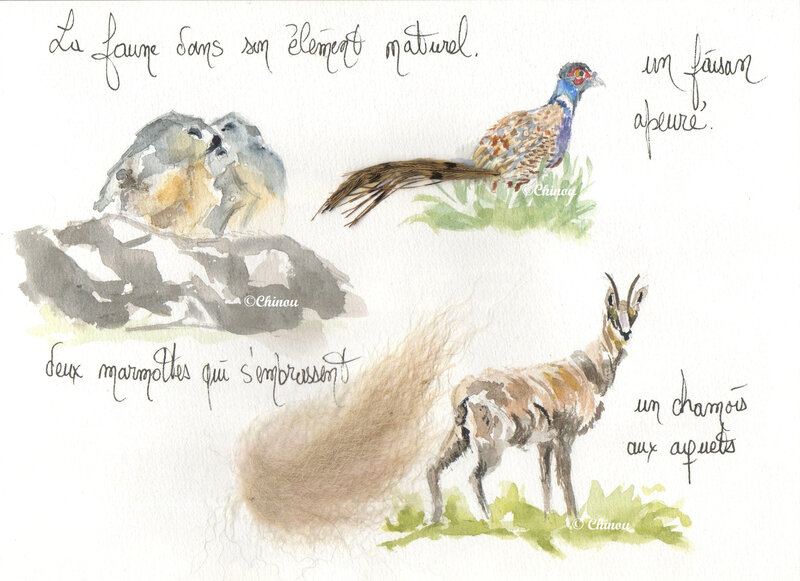 La faune dans son élément naturel.
un faisan
apeuré.
©Chinou
©Chinou
deux marmottes qui s'embrassent
un chamois
aux aguets
© Chinou